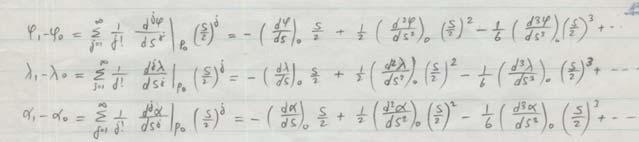 φ₁-φ₀ = ∑_{j=1}^{∞} 1/j! d^jφ/ds^j |_{P₀} (s/2)^j = - (dφ/ds)₀ s/2 + 1/2 (d²φ/ds²)₀ (s/2)² - 1/6 (d3φ/ds²)₀ (s/2)³ + ...
λ₁-λ₀ = ∑_{j=1}^{∞} 1/j! d^jλ/ds^j |_{P₀} (s/2)^j = - (dλ/ds)₀ s/2 + 1/2 (d²λ/ds²)₀ (s/2)² - 1/6 (d3λ/ds²)₀ (s/2)³ + ...
α₁-α₀ = ∑_{j=1}^{∞} 1/j! d^jα/ds^j |_{P₀} (s/2)^j = - (dα/ds)₀ s/2 + 1/2 (d²α/ds²)₀ (s/2)² - 1/6 (d3α/ds²)₀ (s/2)³ + ...